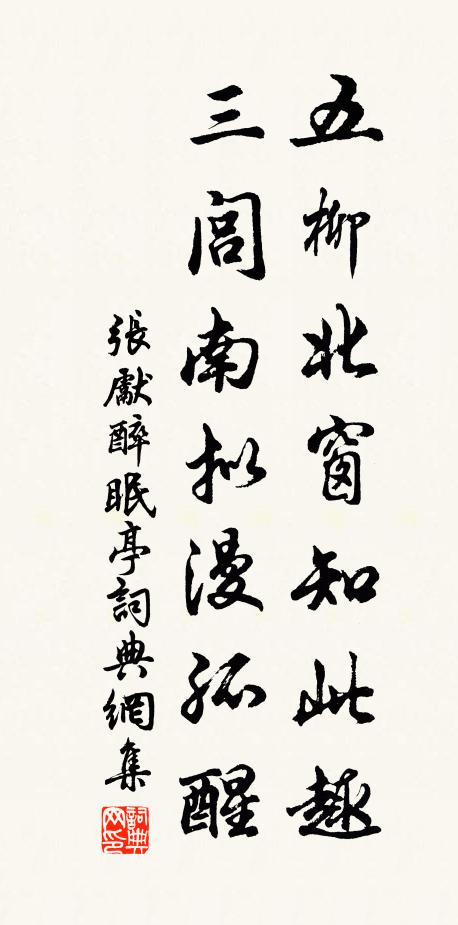 五柳北窗知此趣
三闾南拟漫孤醒
張獻醉眠亭詞典網集
詞典网印